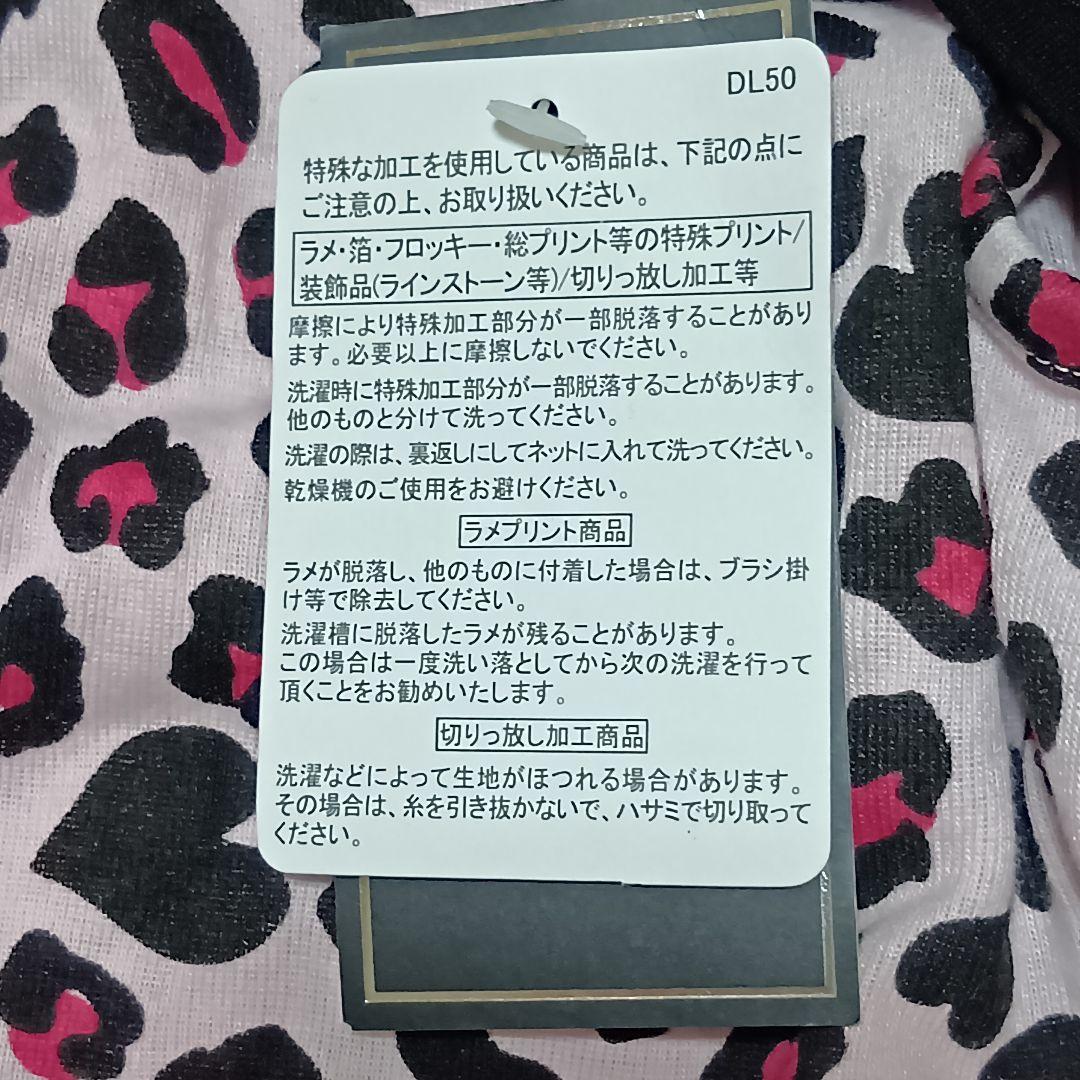 DL50
特殊な加工を使用している商品は、下記の点に
ご注意の上、お取り扱いください。
ラメ・箔・フロッキー・総プリント等の特殊プリント/
装飾品(ラインストーン等)/切りっ放し加工等
摩擦により特殊加工部分が一部脱落することがあり
ます。必要以上に摩擦しないでください。
洗濯時に特殊加工部分が一部脱落することがあります。
他のものと分けて洗ってください。
洗濯の際は、裏返しにしてネットに入れて洗ってください。
乾燥機のご使用をお避けください。
ラメプリント商品
ラメが脱落し、他のものに付着した場合は、ブラシ掛
け等で除去してください。
洗濯槽に脱落したラメが残ることがあります。
この場合は一度洗い落としてから次の洗濯を行って
頂くことをお勧めいたします。
切りっ放し加工商品
洗濯などによって生地がほつれる場合があります。
その場合は、糸を引き抜かないで、ハサミで切り取って
ください。